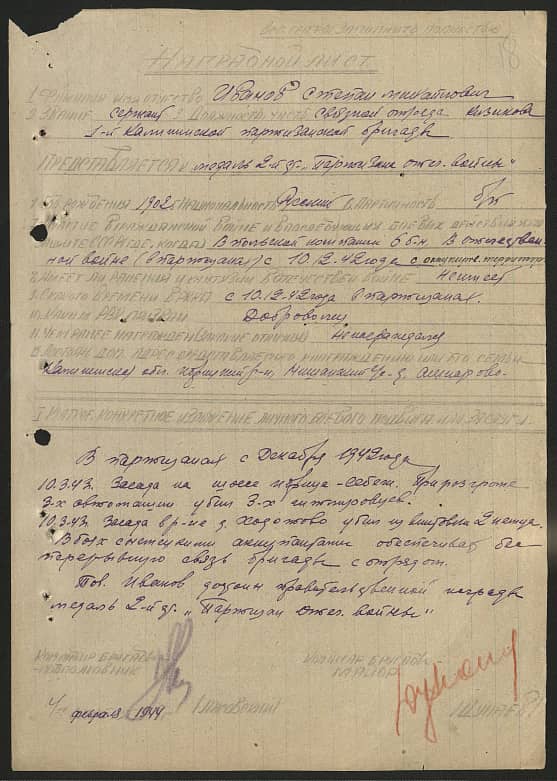 18
НАГРАДНОЙ ЛИСТ
1. ФАМИЛИЯ ИМЯ ОТЧЕСТВО Иванов Степан Михайлович
2. ЗВАНИЕ сержант 3. ДОЛЖНОСТЬ, ЧАСТЬ связной отряда
1-й Калининской партизанской бригады
ПРЕДСТАВЛЯЕТСЯ к медаль 2-й ст. „Партизан отеч. войны"
4. ГОД РОЖДЕНИЯ 1902 5. НАЦИОНАЛЬНОСТЬ Русский 6. ПАРТИЙНОСТЬ б/п
7. УЧАСТИЕ В ГРАЖДАНСКОЙ ВОЙНЕ И ПОСЛЕДУЮЩИХ БОЕВЫХ ДЕЙСТВИЯХ ПО
ЗАЩИТЕ СССР (ГДЕ, КОГДА) В польской кампании В отечествен-
ной войне (в партизанах) с 10.12.42 года с оккупиров. территор.
8. ИМЕЕТ ЛИ РАНЕНИЯ И КОНТУЗИИ В ОТЕЧЕСТВЕННОЙ ВОЙНЕ Не имеет
9. С КАКОГО ВРЕМЕНИ В РККА с 10.12.42 года в партизанах.
10. КАКИМ РВК ПРИЗВАН Добровольно
11. ЧЕМ РАНЕЕ НАГРАЖДЕН (ЗА КАКИЕ ОТЛИЧИЯ) Не награждался
12. ПОСТОЯН. ДОМ. АДРЕС ПРЕДСТАВЛЯЕМОГО К НАГРАЖДЕНИЮ ИЛИ ЕГО СЕМЬИ
Калининская обл. Идрицкий р-н, д.
I КРАТКОЕ, КОНКРЕТНОЕ ИЗЛОЖЕНИЕ ЛИЧНОГО БОЕВОГО ПОДВИГА ИЛИ ЗАСЛУГ.
В партизанах с Декабря 1942 года
10.3.43. Засада на шоссе Идрица-Себеж. При разгроме
3-х автомашин убил 3-х гитлеровцев.
10.3.43. Засада в р-не д. Ходюково убил из винтовки 2 немца.
В боях с немецкими оккупантами обеспечивал бес
перерывную связь бригады с отрядом.
Тов. Иванов достоин правительственной награды
медаль 2-й ст. „Партизан Отеч. войны"
КОМАНДИР БРИГАДЫ
ПОДПОЛКОВНИК
КОМИССАР БРИГАДЫ
МАЙОР
февраля 1944